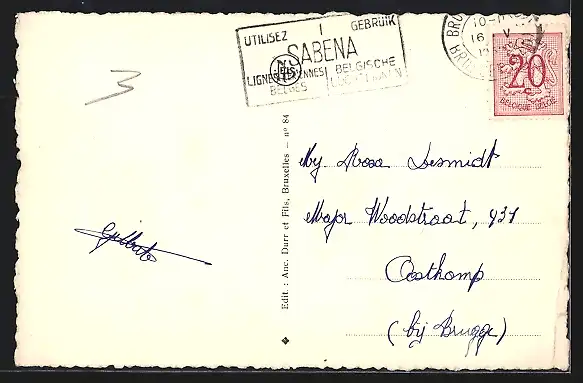 UTILISEZ GEBRUIK
SABENA
LIGNES AERIENNES BELGES
BELGISCHE LUCHTLIJNEN
BRU
16 V
20
c
BELGIQUE-BELGIE
3
Gilberte
Edit : Anc. Durr et Fils, Bruxelles — nº 84
Mej. Rosa Desmidt
Major Woodstraat, 131
Oostkamp
(bij Brugge)